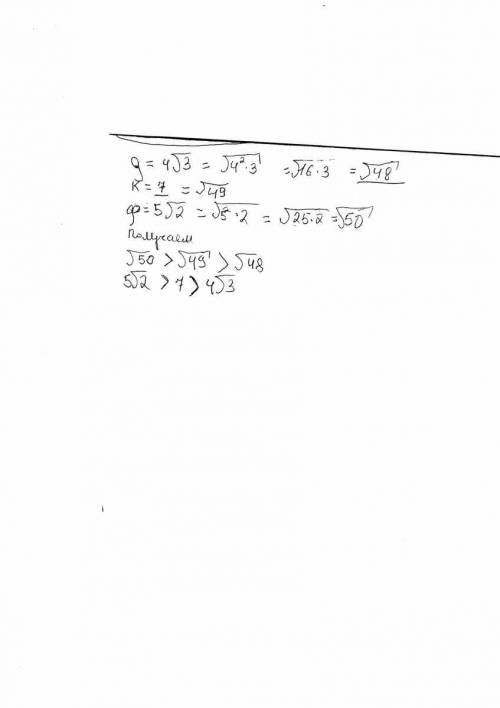 д = 4√3 = √4²·3 = √16·3 = √48
к = 7 = √49
ф = 5√2 = √5²·2 = √25·2 = √50
Получаем
√50 > √49 > √48
5√2 > 7 > 4√3